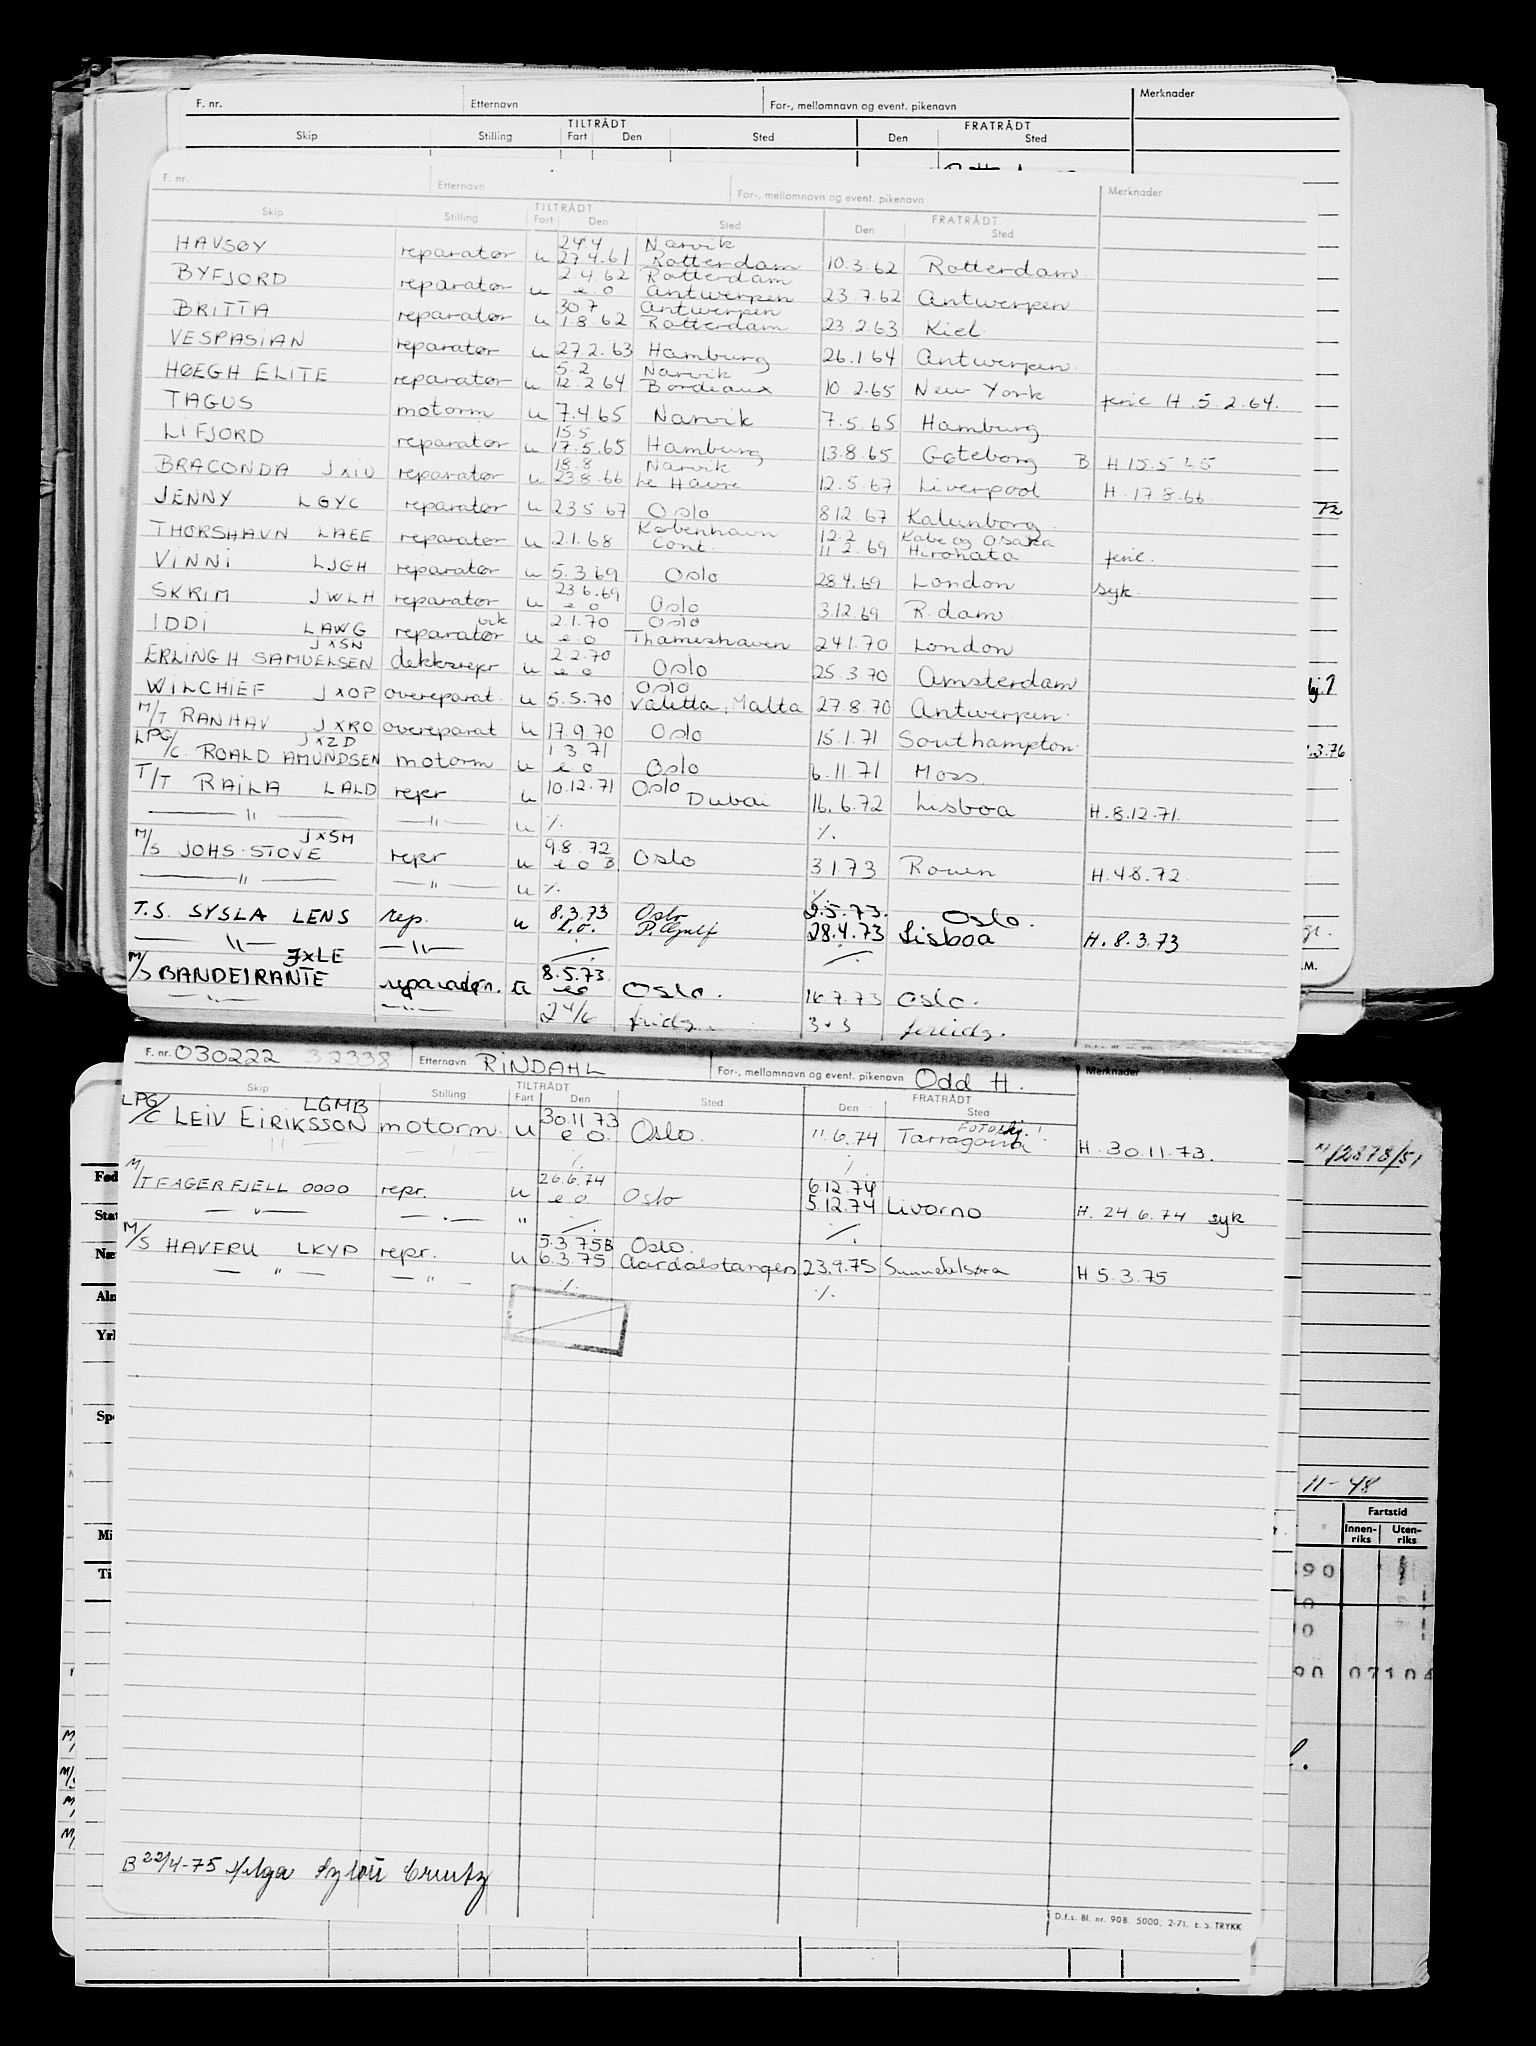 F. nr. Etternavn For-, mellomnavn og event. pikenavn Merknader
TILTRÅDT FRATRÅDT
Skip Stilling Fart Den Sted Den Sted
F. nr. Etternavn For-, mellomnavn og event. pikenavn Merknader
TILTRÅDT FRATRÅDT
Skip Stilling Fart Den Sted Den Sted
24.4 Narvik
HAVSØY reparatør u 27.4.61 Rotterdam 10.3.62 Rotterdam
2.4.62 Rotterdam
BYFJORD reparatør u e.o Antwerpen 23.7.62 Antwerpen
30.7 Antwerpen
BRITTA reparatør u 1.8.62 Rotterdam 23.2.63 Kiel
VESPASIAN reparatør u 27.2.63 Hamburg 26.1.64 Antwerpen
5.2 Narvik
HØEGH ELITE reparatør u 12.2.64 Bordeaux 10.2.65 New York ferie H.5.2.64.
TAGUS motorm u 7.4.65 Narvik 7.5.65 Hamburg
15.5
LIFJORD reparatør u 17.5.65 Hamburg 13.8.65 Gøteborg B H 15.5.65
18.8 Narvik
BRACONDA JXIU reparatør u 23.8.66 Le Havre 12.5.67 Liverpool H.17.8.66
JENNY LGYC reparatør u 23.5.67 Oslo 8.12.67 Kalunborg
København 12.2 Kobe og Osaka
THORSHAVN LAEE reparatør u 2.1.68 Cont. 11.2.69 Hirohata ferie.
VINNI LJGH reparatør u 5.3.69 Oslo 28.4.69 London syk
23.6.69
SKRIM JWLH reparatør u e.o Oslo 3.12.69 R.dam
2.1.70 Oslo
IDDI LAWG reparatør u e.o Thameshaven 24.1.70 London
JXSN 2.2.70
ERLING H SAMUELSEN dekksrepr u e.o Oslo 25.3.70 Amsterdam
Oslo
WILCHIEF JXOP overeparat. u 5.5.70 Valetta, Malta 27.8.70 Antwerpen
M/T RANHAV JXRO overeparat u 17.9.70 Oslo 15.1.71 Southampton
JXZD 1.3.71
LPG/C. ROALD AMUNDSEN motorm u e.o Oslo 6.11.71 Moss
T/T RAILA LALD repr u 10.12.71 Oslo Dubai 16.6.72 Lisboa H.8.12.71.
— " — — " — u ./. ./.
JXSM 9.8.72
M/S JOHS. STOVE repr u e.o B. Oslo 3.1.73 Rouen H.4.8.72.
— " — — " — u ./. ./.
8.3.73 Oslo 2.5.73. Oslo.
T.S. SYSLA LENS rep. u e.o. P.Gulf 28.4.73 Lisboa H.8.3.73
— " — — " — ./. ./.
JXLE 8.5.73
M/S BANDEIRANTE reparatør. u eo Oslo. 16.7.73 Oslo.
— " — — " — 24/6 fridg. 3+3 feriedg.
F. nr. 030222 32338 Etternavn RINDAHL For-, mellomnavn og event. pikenavn Odd H. Merknader
TILTRÅDT FRATRÅDT
Skip Stilling Fart Den Sted Den Sted
LGMB 30.11.73
LPG/C LEIV EIRIKSSON motorm. u e.o. Oslo. 11.6.74 Tarragona H.30.11.73.
./. ./.
26.6.74 6.12.74
M/T FAGERFJELL OOOO repr. u e.o Oslo 5.12.74 Livorno H. 24.6.74 syk
— " — — " — " ./. ./.
5.3.75B Oslo.
M/S HAVERU LKYP repr. u 6.3.75 Aardalstangen 23.9.75 Sunndalsøra H 5.3.75
— " — — " — ./. ./.
B 22/4-75 Helga
D.f.s. Bl. nr. 90B. 5000, 2-71. E.S. TRYKK
12878/51
11-48
Fartstid
Innen-riks Uten-riks
90
07104